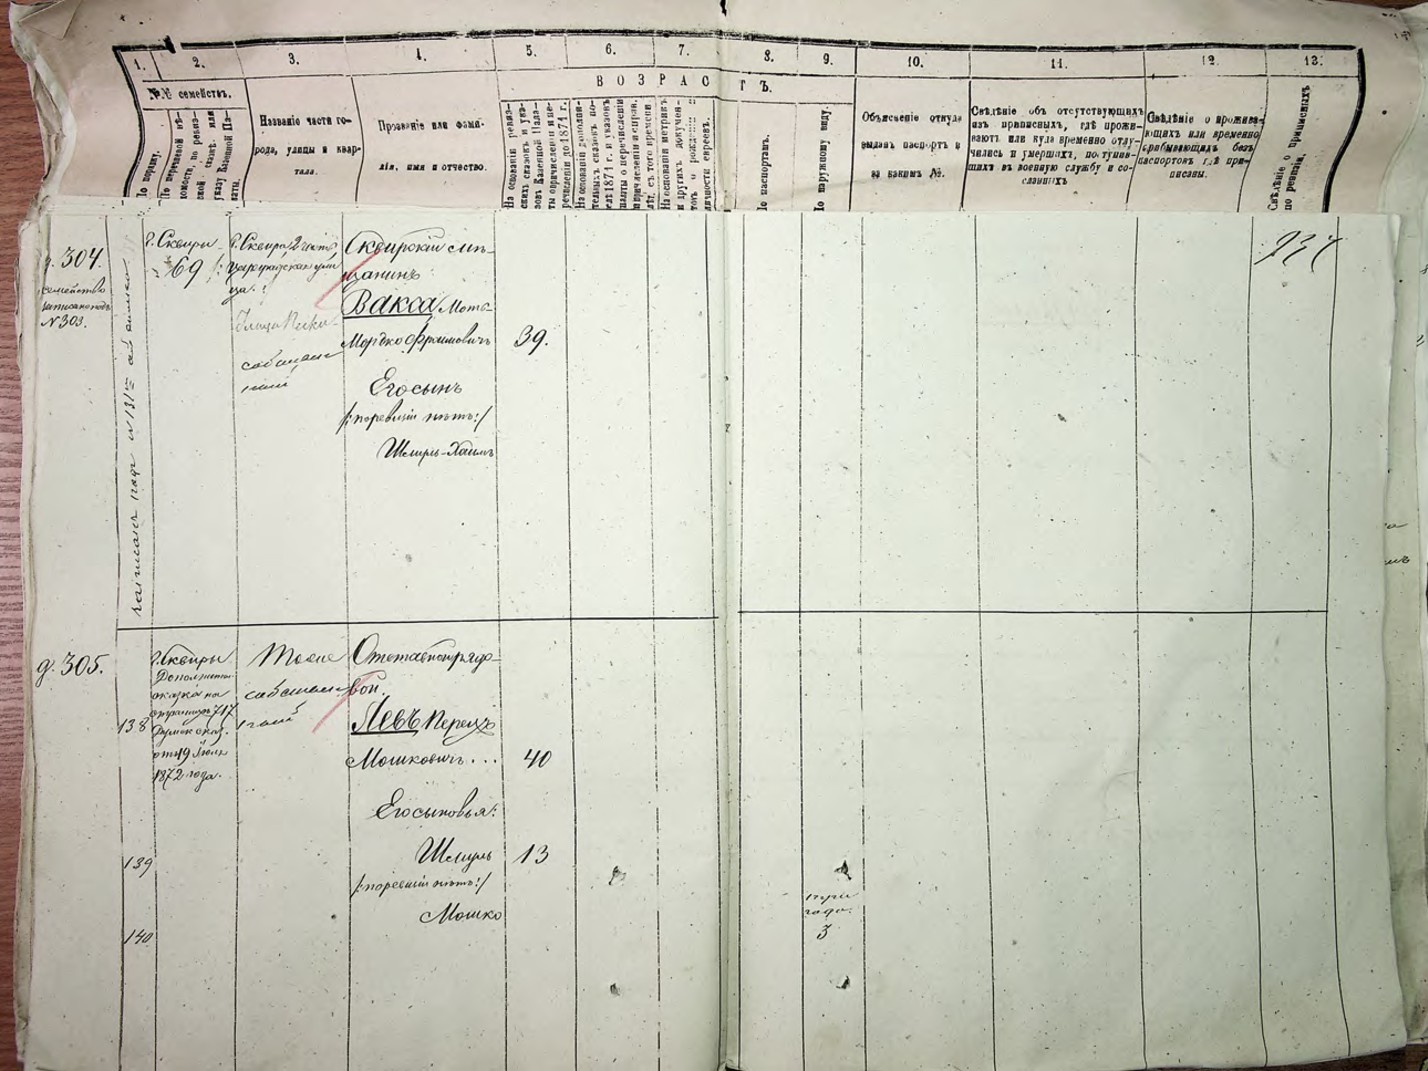 1. 2. 3. 4. 5. 6. 7. 8. 9. 10. 11. 12. 13.
ВОЗРАСТЪ.
№№ семействъ.
По порядку.
По перечневой вѣ-
домости, по ревиз-
ской сказкѣ, или
указу Казенной Па-
латы.
Названіе части го-
рода, улицы и квар-
тала.
Прозваніе или фами-
лія, имя и отчество.
На основаніи ревиз-
скихъ сказокъ и ука-
зовъ Казенной Пала-
ты о причисленіи и пе-
речисленіи до 1874 г.
На основаніи дополни-
тельныхъ сказокъ по-
слѣ 1874 г. и указовъ
палаты о перечисленіи
и причисленіи и справ.
лѣт. съ того времени
На основаніи метрикъ
и другихъ докумен-
товъ о рожденіи и
личности евреевъ.
По паспортамъ.
По наружному виду.
Объясненіе откуда
выданъ паспортъ и
за какимъ №.
Свѣдѣніе объ отсутствующихъ
изъ приписныхъ, гдѣ прожи-
ваютъ или куда временно отлу-
чились и умершихъ, поступив-
шихъ въ военную службу и со-
сланныхъ
Свѣдѣніе о прожива-
ющихъ или временно
пребывающихъ безъ
паспортовъ гдѣ при-
писаны.
Свѣдѣніе о приписанныхъ
по ревизіи.
304.
семейство
записано подъ
№ 303.
г. Сквиры
69
г. Сквира, 2 часть
Сквирскій мѣ-
щанинъ
Вакса Моть-
Мордко Фроимовичъ
39.
Его сынъ
/:по ревизіи нѣтъ:/
Шмиль-Хаимъ
934
305.
138
г. Сквиры
Дополнит.
сказка на
страницѣ 717
отъ 19 Іюля
1872 года.
Тоже
Отставной рядо-
вой.
Левъ Перецъ
Мошковичъ...
40
Его сыновья:
139
Шмуль
13
/:по ревизіи нѣтъ:/
140
Мошко
три
года.
3